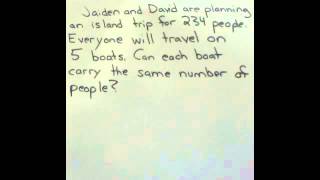 Jaiden and David are planning
an island trip for 234 people.
Everyone will travel on
5 boats. Can each boat
carry the same number of
people?